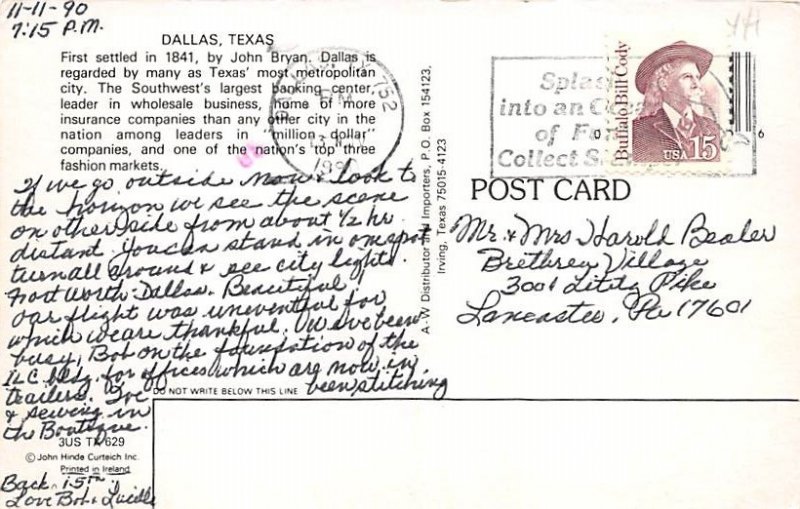 11-11-90
7:15 P.M.
DALLAS, TEXAS
First settled in 1841, by John Bryan, Dallas is
regarded by many as Texas' most metropolitan
city. The Southwest's largest banking center,
leader in wholesale business, home of more
insurance companies than any other city in the
nation among leaders in "million dollar"
companies, and one of the nation's top three
fashion markets.
If we go outside now & look to
the horizon we see the scene
on other side from about 1/2 hr.
distant. You can stand in one spot
turn all around & see city lights.
Fort Worth-Dallas. Beautiful.
Our flight was uneventful for
which we are thankful. We've been
busy, Bob on the foundation of the
ILC bldg. for offices which are now in
trailers. I've been stitching
& sewing in
the Boutique.
DO NOT WRITE BELOW THIS LINE
3US TX 629
© John Hinde Curteich Inc.
Printed in Ireland
Back 15th
Love Bob & Lucille
A-W Distributor and Importers, P.O. Box 154123,
Irving, Texas 75015-4123
752
PM
1990
into an
of
Collect
Buffalo Bill Cody
USA 15
POST CARD
Mr. & Mrs Harold Bealer
Brethren Village
3001 Lititz Pike
Lancaster, Pa 17601